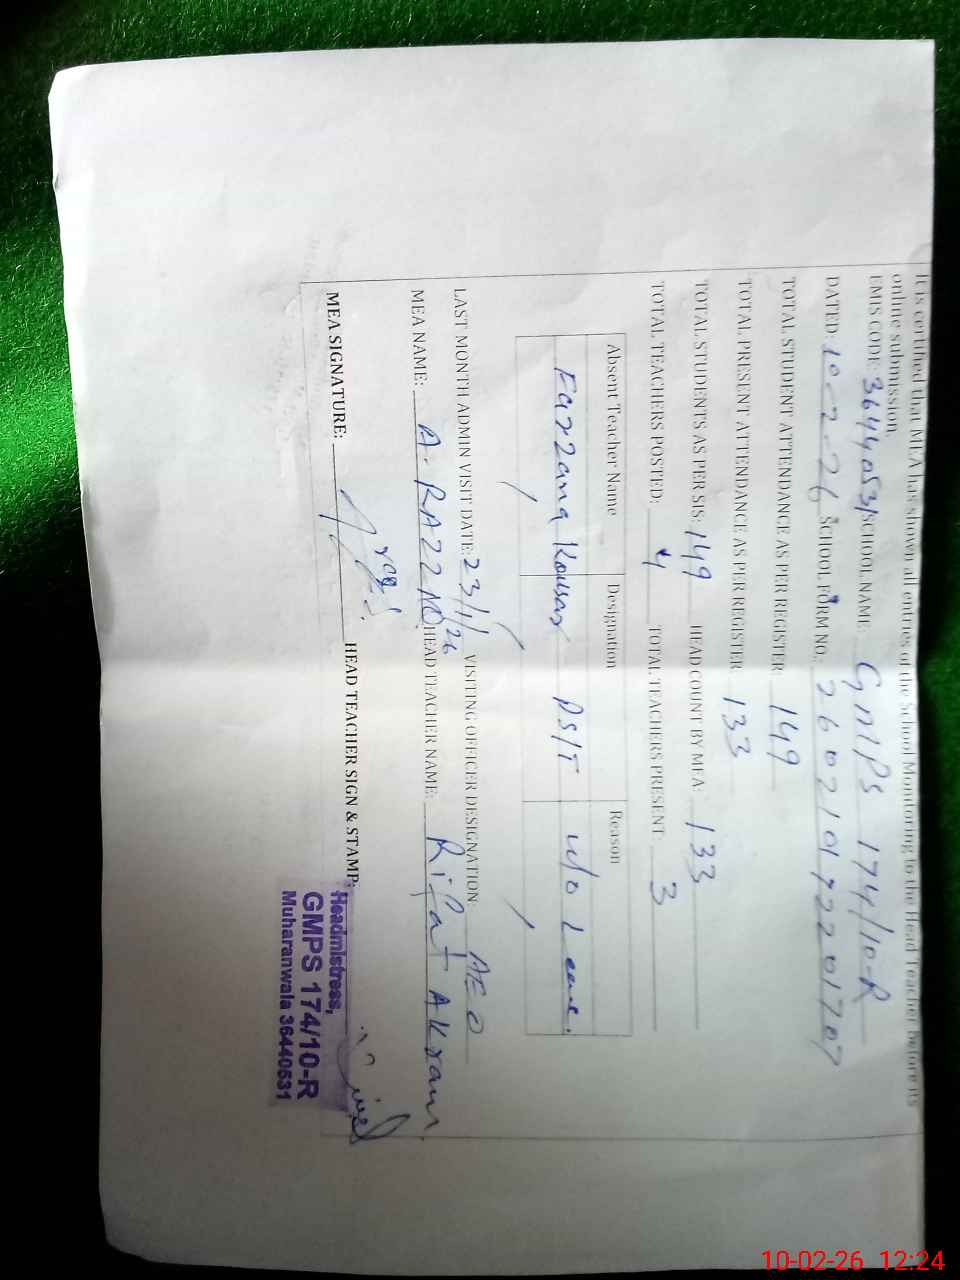 It is certified that MEA has shown all entries of the School Monitoring to the Head Teacher before its
online submission.
EMIS CODE: 36440531 SCHOOL NAME: GMPS 174/10-R
DATED: 10-2-26 SCHOOL FORM NO:
TOTAL STUDENT ATTENDANCE AS PER REGISTER: 149
TOTAL PRESENT ATTENDANCE AS PER REGISTER 133
TOTAL STUDENTS AS PER SIS: 149 HEAD COUNT BY MEA: 133
TOTAL TEACHERS POSTED: 4 TOTAL TEACHERS PRESENT: 3
Absent Teacher Name Designation Reason
Farzana Kousar PST w/o Leave.
LAST MONTH ADMIN VISIT DATE: 23/1/26 VISITING OFFICER DESIGNATION: AEO
MEA NAME: A. RAZZAQ HEAD TEACHER NAME: Rifat Akram
MEA SIGNATURE: HEAD TEACHER SIGN & STAMP:
Headmistress,
GMPS 174/10-R
Muharanwala 36440531
10-02-26 12:24